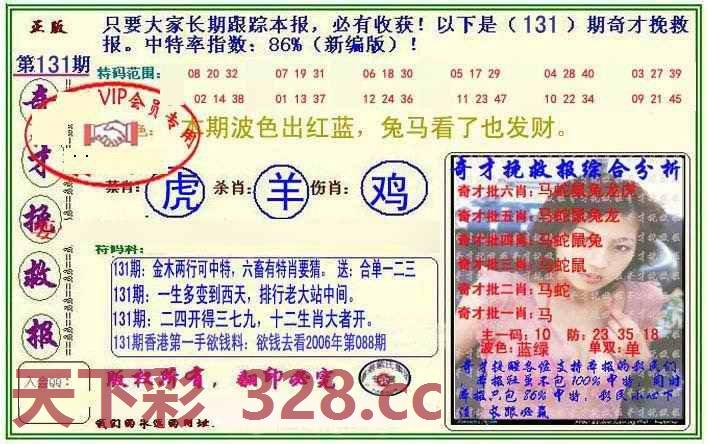 正版
只要大家长期跟踪本报，必有收获！以下是（131）期奇才挽救
报。中特率指数：86%（新编版）！
第131期
奇
才
挽
救
报
特码范围：
08 20 32 07 19 31 06 18 30 05 17 29 04 28 40 03 27 39
02 14 38 01 13 37 12 24 36 11 23 47 10 22 34 09 21 45
VIP会员专用
色：本期波色出红蓝，兔马看了也发财。
禁肖：虎 杀肖：羊 伤肖：鸡
符码料：
131期：金木两行可中特，六畜有特肖要猜。 送：合单一二三
131期：一生多变到西天，排行老大站中间。
131期：二四开得三七九，十二生肖大者开。
131期香港第一手欲钱料：欲钱去看2006年第088期
奇才挽救报综合分析
奇才批六肖：马蛇鼠兔龙虎
奇才批五肖：马蛇鼠兔龙
奇才批四肖：马蛇鼠兔
奇才批三肖：马蛇鼠
奇才批二肖：马蛇
奇才批一肖：马
主一码：10 防：23 35 18
波色：蓝绿 单双：单
奇才挽救各位支持本报的彩民们
本报社虽不包100%中特，同时
本报只包86%中特，彩民小心下
注，求跟必赢
版权所有，翻印必究
天下彩 328.cc
我们的永远的网址．